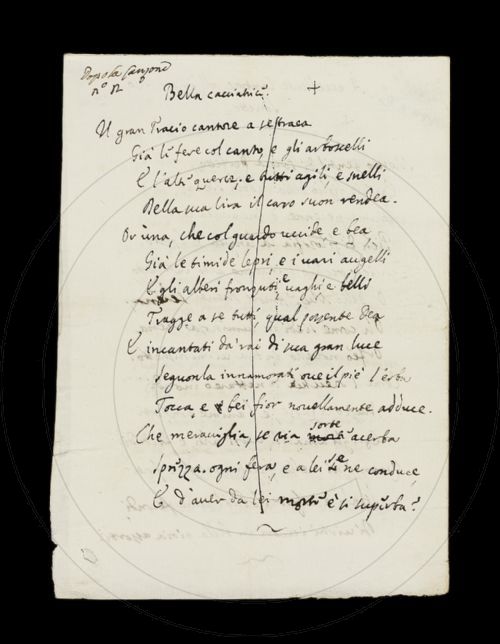 Dopo la Canzone
n.º 12
Bella cacciatrice.
Il gran Tracio cantore a se traea
Già le fere col canto, e gli arboscelli
E l'alte querce, e tutti agili, e snelli
Della sua lira il caro suon rendea.
Or una, che col guardo uccide e bea
Già le timide lepri, e i vari augelli
E gli alberi fronzuti, e vaghi, e belli
Tragge a se tutti, qual possente Dea
E incantati da' rai di sua gran luce
Seguonla innamorati ove il piè l'erba
Tocca, e bei fior novellamente adduce.
Che meraviglia, se ria sorte acerba
Sprezza ogni fera, e a lei se ne conduce
E d'aver da lei morte è sì superba?